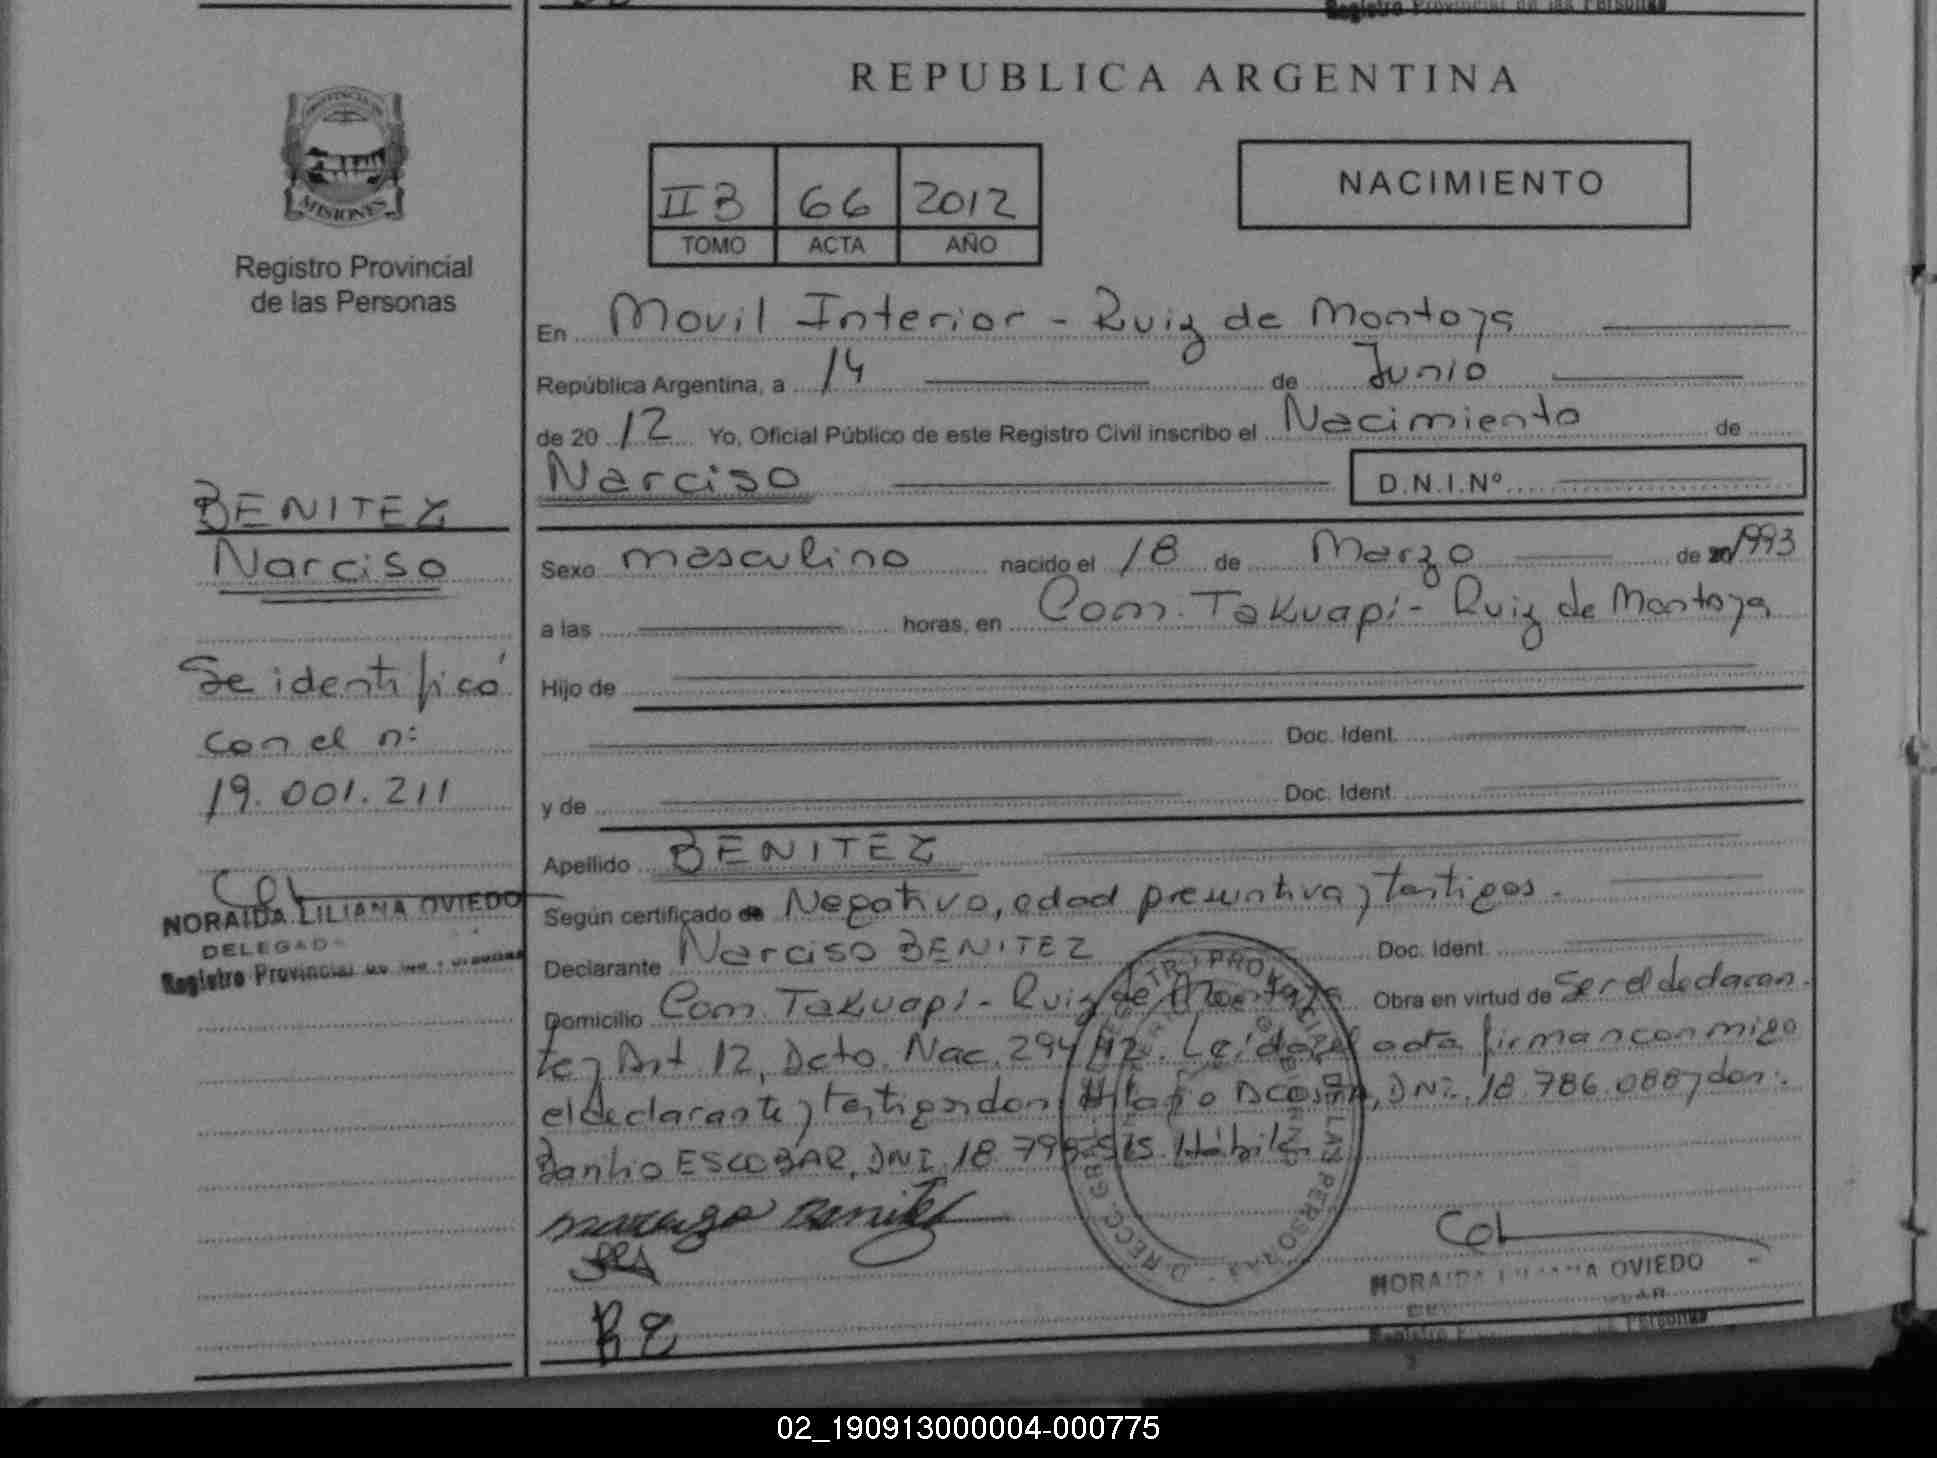 Registro Provincial de las Personas
REPUBLICA ARGENTINA
PROVINCIA DE
MISIONES
Registro Provincial
de las Personas
II B 66 2012
TOMO ACTA AÑO
NACIMIENTO
En Movil Interior - Ruiz de Montoya
República Argentina, a 14 de Junio
de 20 12 Yo, Oficial Público de este Registro Civil inscribo el Nacimiento de
Narciso D.N.I.Nº
Sexo masculino nacido el 18 de Marzo de 1993
a las horas, en Com. Takuapi - Ruiz de Montoya
Hijo de
Doc. Ident.
y de Doc. Ident.
Apellido BENITEZ
Según certificado de Negativo, edad presuntiva y testigos.
Declarante Narciso BENITEZ Doc. Ident.
Domicilio Com. Takuapi - Ruiz de Montoya Obra en virtud de Ser el declaran-
te y Art 12, Dcto. Nac. 294/12. Leída el acta firman conmigo
el declarante y testigos don Hilario Acosta, DNI. 18.786.088 y don
ESCOBAR, DNI 18. Hábiles
BENITEZ
Narciso
Se identificó
con el n:
19.001.211
NORAIDA LILIANA OVIEDO
DELEGADA
Registro Provincial de las Personas
NORAIDA LILIANA OVIEDO
Registro Personas
02_190913000004-000775